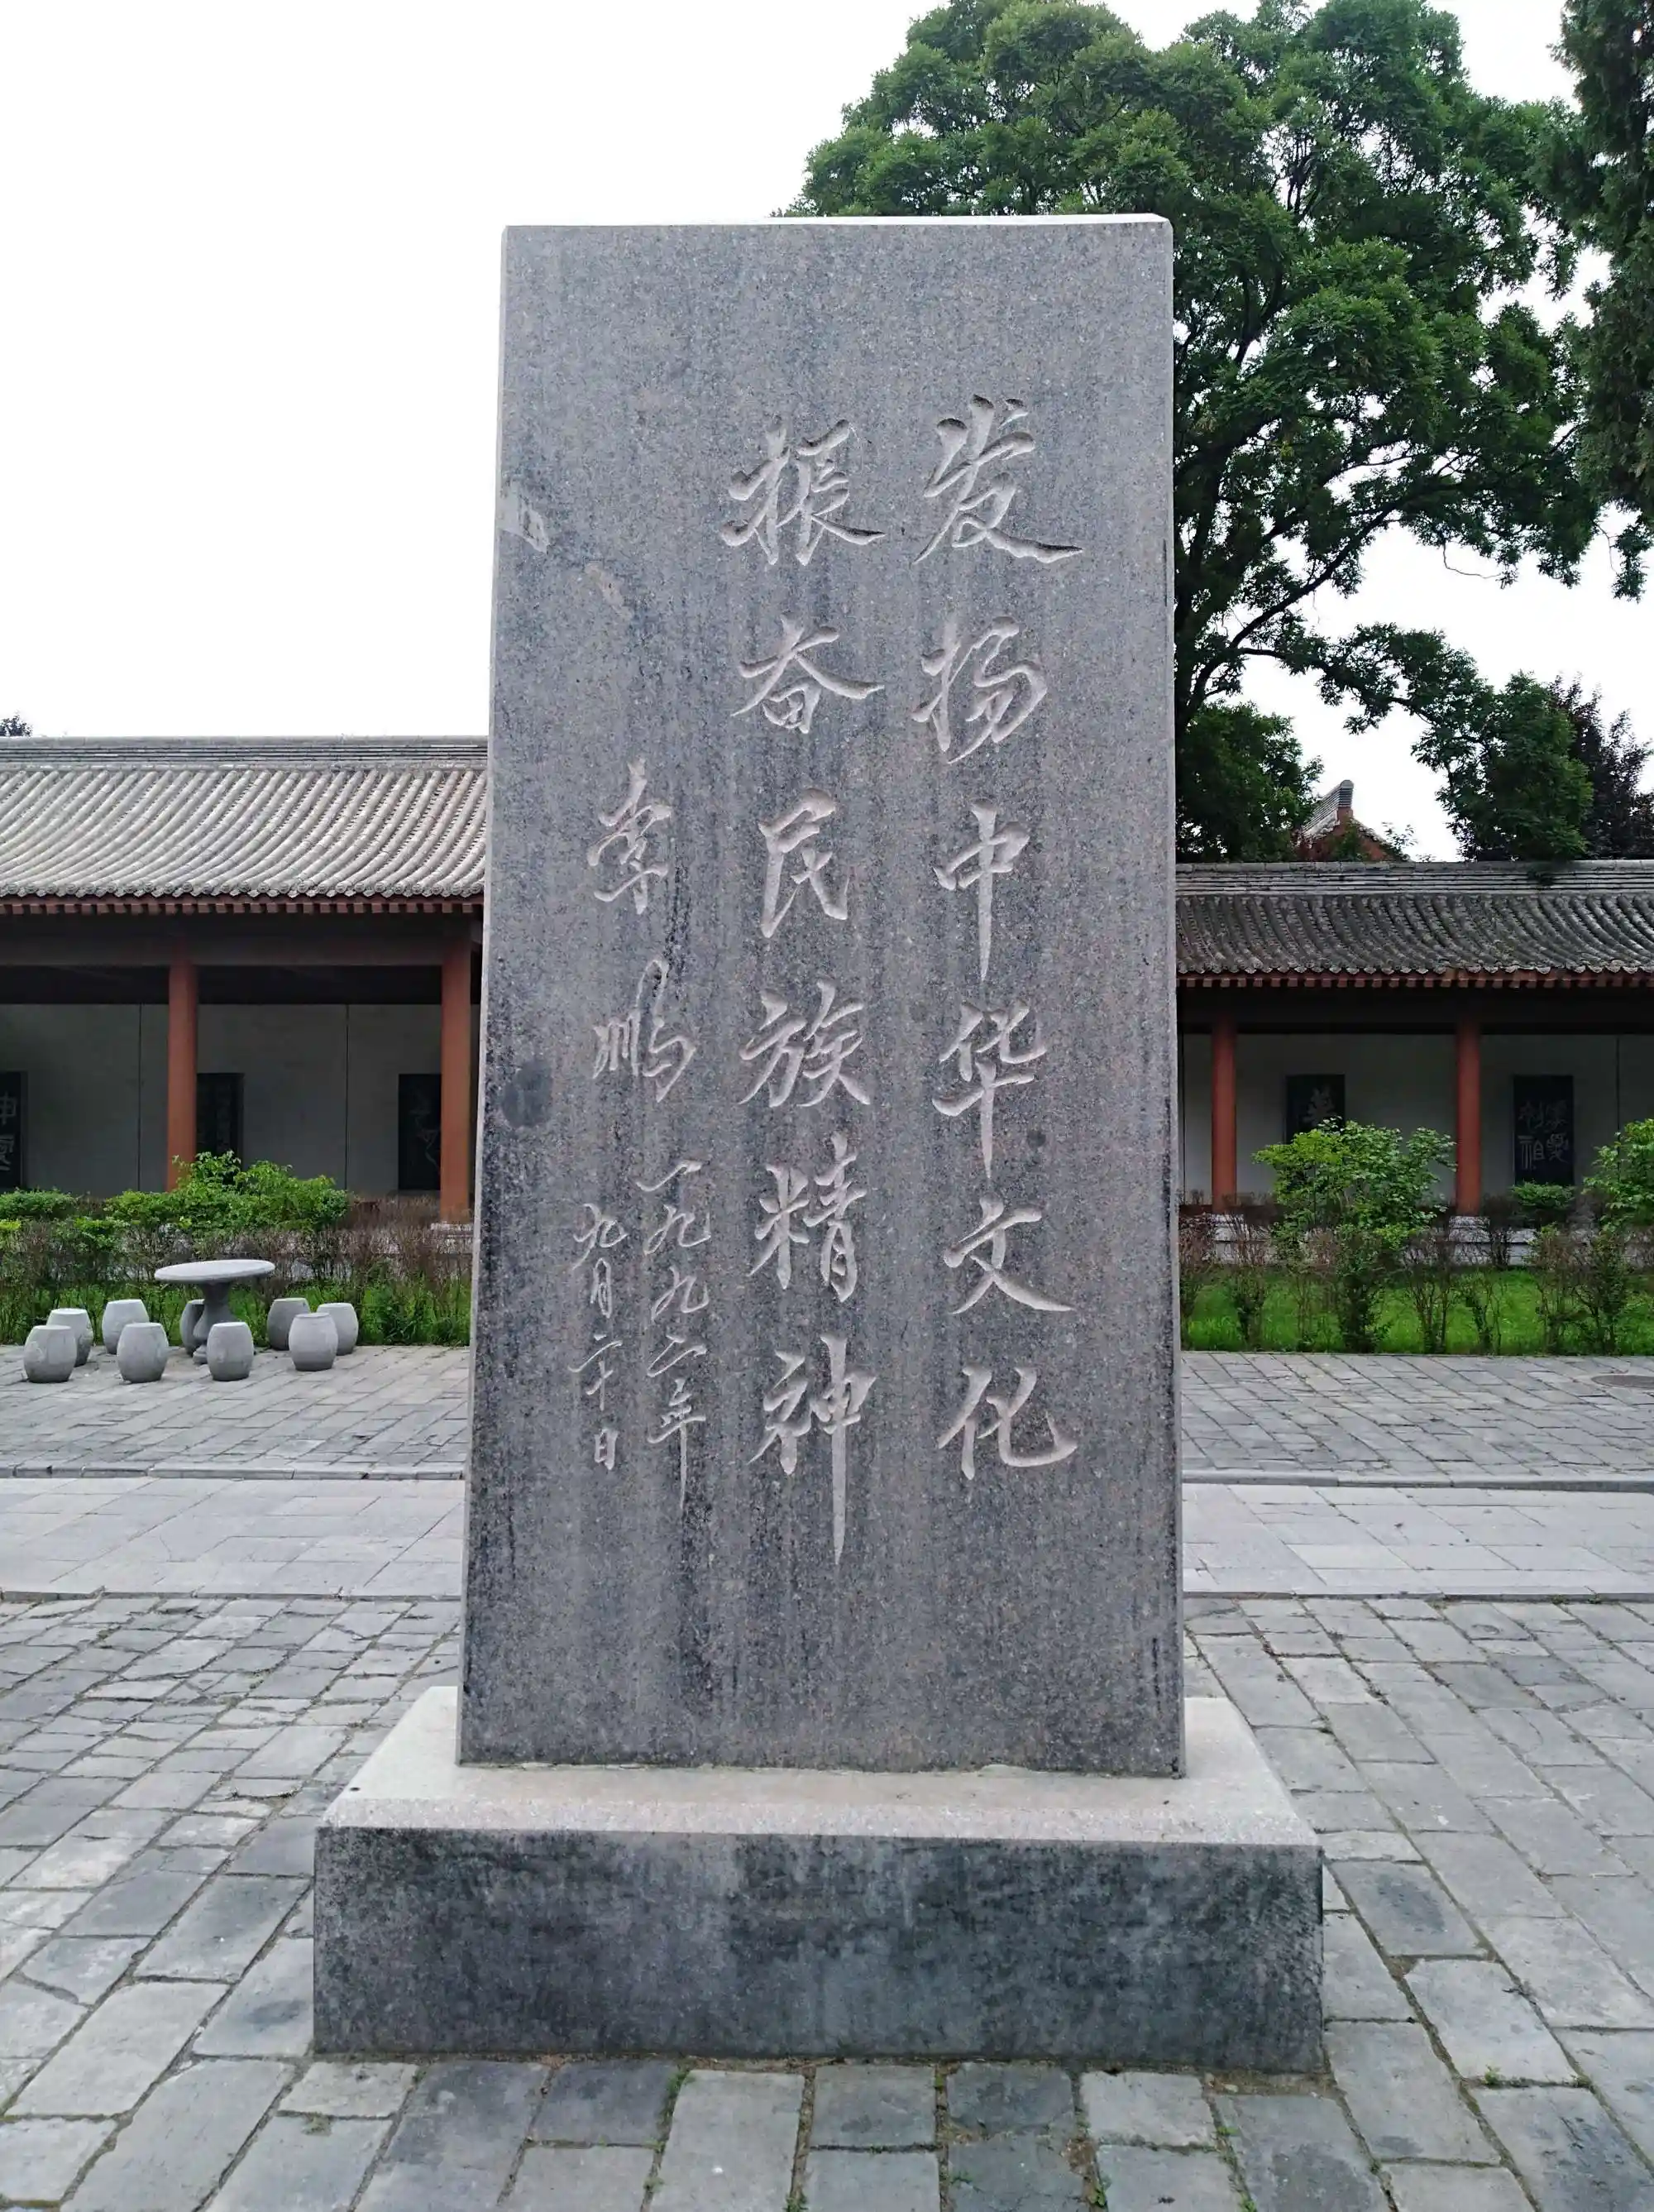 发扬中华文化
振奋民族精神
李鹏
一九九二年
九月二十日